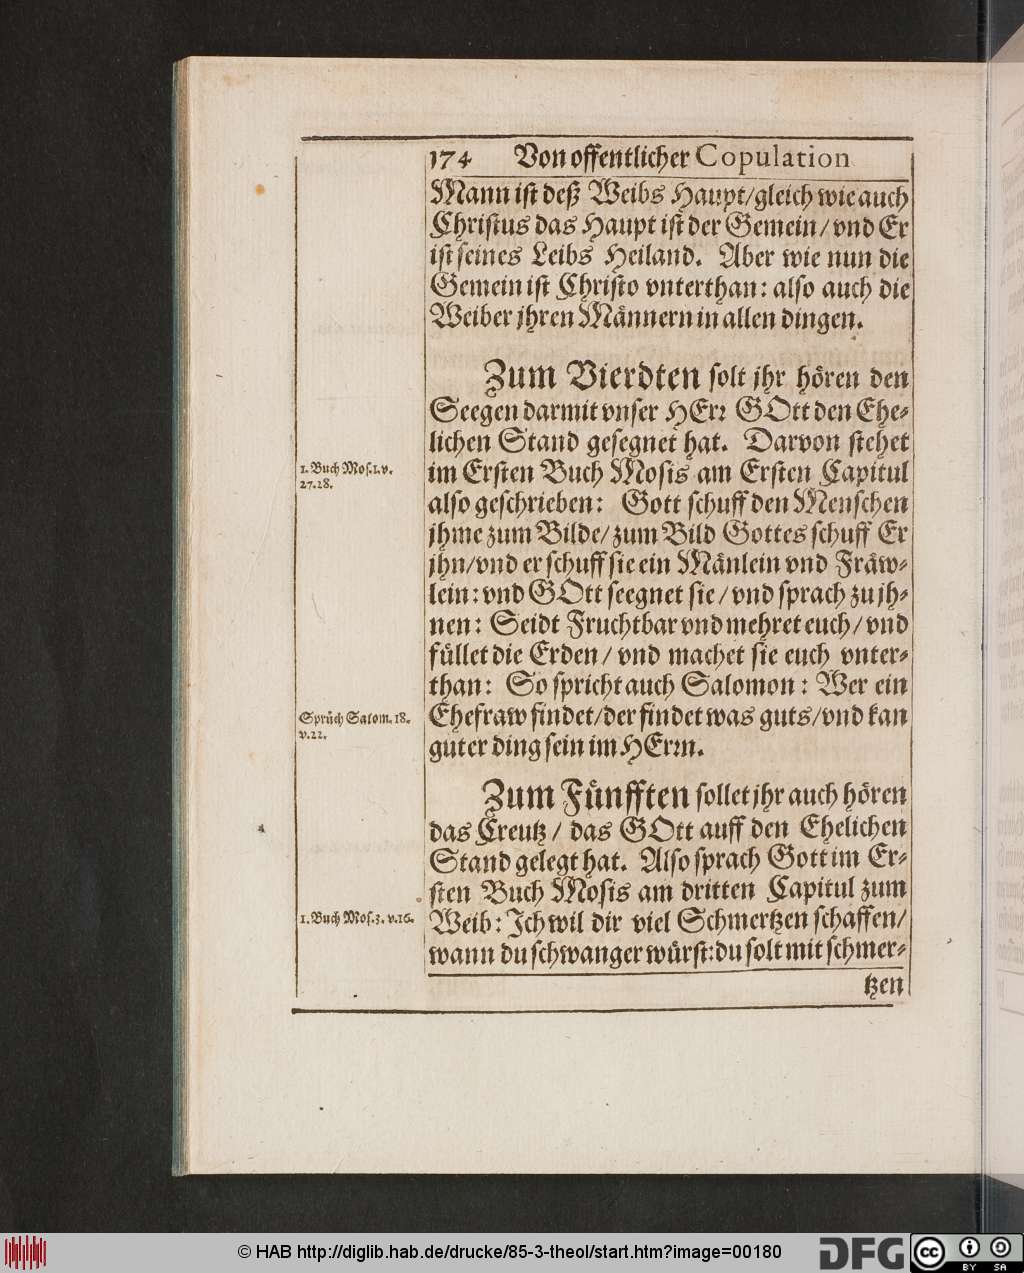 174 Von offentlicher Copulation
Mann ist deß Weibs Haupt/gleich wie auch
Christus das Haupt ist der Gemein/vnd Er
ist seines Leibs Heiland. Aber wie nun die
Gemein ist Christo vnterthan: also auch die
Weiber jhren Männern in allen dingen.
Zum Vierdten solt jhr hören den
Seegen darmit vnser HErr GOtt den Ehe-
lichen Stand gesegnet hat. Darvon stehet
1. Buch Mos.1.v.
27.28.
im Ersten Buch Mosis am Ersten Capitul
also geschrieben: Gott schuff den Menschen
jhme zum Bilde/zum Bild Gottes schuff Er
jhn/vnd er schuff sie ein Mänlein vnd Fräw-
lein: vnd GOtt seegnet sie/vnd sprach zu jh-
nen: Seidt Fruchtbar vnd mehret euch/vnd
füllet die Erden/vnd machet sie euch vnter-
than: So spricht auch Salomon: Wer ein
Sprüch Salom. 18.
v.22.
Ehefraw findet/der findet was guts/vnd kan
guter ding sein im HErrn.
Zum Fünfften sollet jhr auch hören
das Creutz/das GOtt auff den Ehelichen
Stand gelegt hat. Also sprach Gott im Er-
sten Buch Mosis am dritten Capitul zum
1. Buch Mos.3. v.16.
Weib: Ich wil dir viel Schmertzen schaffen/
wann du schwanger würst: du solt mit schmer-
tzen
© HAB http://diglib.hab.de/drucke/85-3-theol/start.htm?image=00180
DFG
cc
BY SA